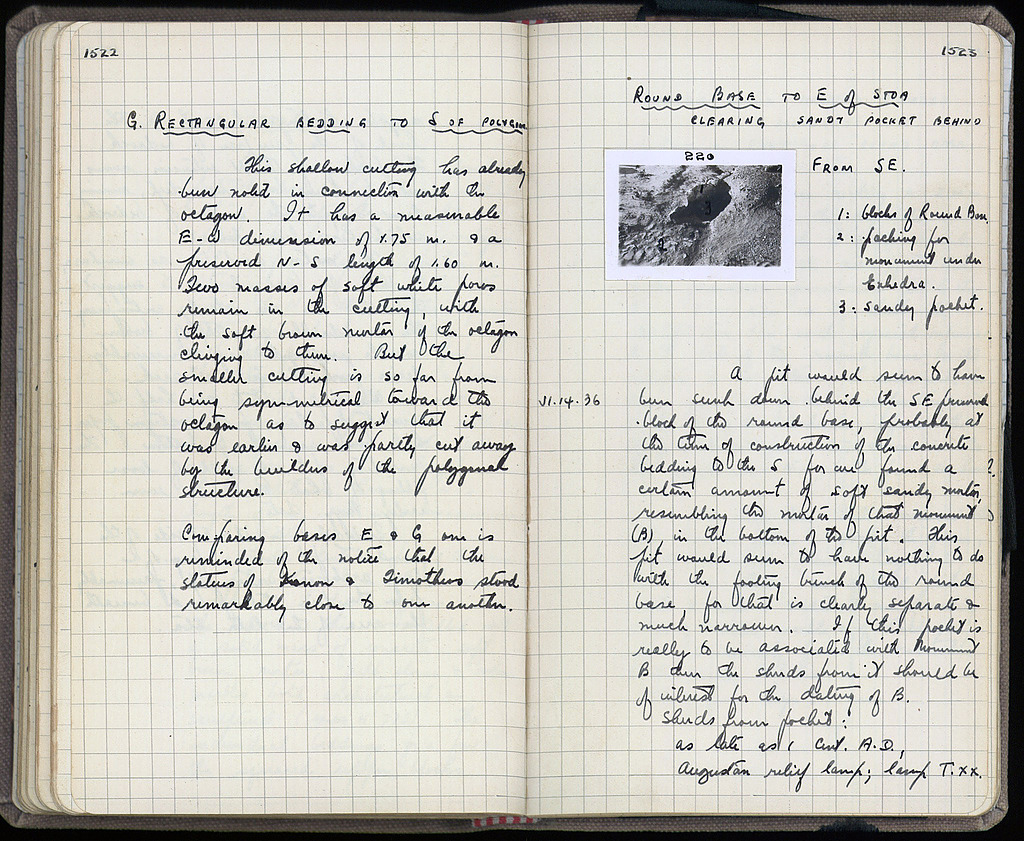 1522
G. RECTANGULAR BEDDING TO S OF POLYGON
This shallow cutting has already
been noted in connection with the
octagon. It has a measurable
E-W dimension of 1.75 m. & a
preserved N-S length of 1.60 m.
Two masses of soft white poros
remain in the cutting, with
the soft brown mortar of the octagon
clinging to them. But the
smaller cutting is so far from
being symmetrical toward the
octagon as to suggest that it
was earlier & was partly cut away
by the builders of the polygonal
structure.
Comparing bases E & G one is
reminded of the notice that the
statues of Konon & Timotheus stood
remarkably close to one another.
1523
ROUND BASE TO E of STOA
CLEARING SANDY POCKET BEHIND
220
FROM SE.
1: blocks of Round Base
2: packing for
monument under
Exhedra.
3: sandy pocket.
A pit would seem to have
VI.14.36 been sunk down behind the SE preserved
block of the round base, probably at
the time of construction of the concrete
bedding to the S for we found a ?
certain amount of soft sandy mortar,
resembling the mortar of that monument
(B), in the bottom of the pit. This
pit would seem to have nothing to do
with the footing trench of the round
base, for that is clearly separate &
much narrower. If this pocket is
really to be associated with Monument
B then the sherds from it should be
of interest for the dating of B.
Sherds from pocket:
as late as 1 cent. A.D.,
Augustan relief lamp; lamp T.XX.